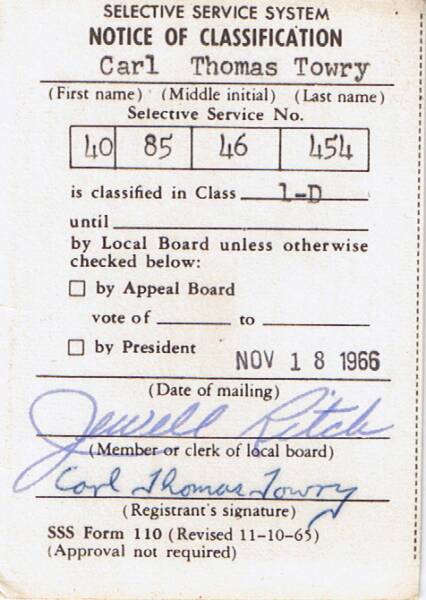 SELECTIVE SERVICE SYSTEM
NOTICE OF CLASSIFICATION
Carl Thomas Towry
(First name) (Middle initial) (Last name)
Selective Service No.
40 85 46 454
is classified in Class 1-D
until
by Local Board unless otherwise
checked below:
by Appeal Board
vote of to
by President NOV 18 1966
(Date of mailing)
Jewell Ritch
(Member or clerk of local board)
Carl Thomas Towry
(Registrant's signature)
SSS Form 110 (Revised 11-10-65)
(Approval not required)